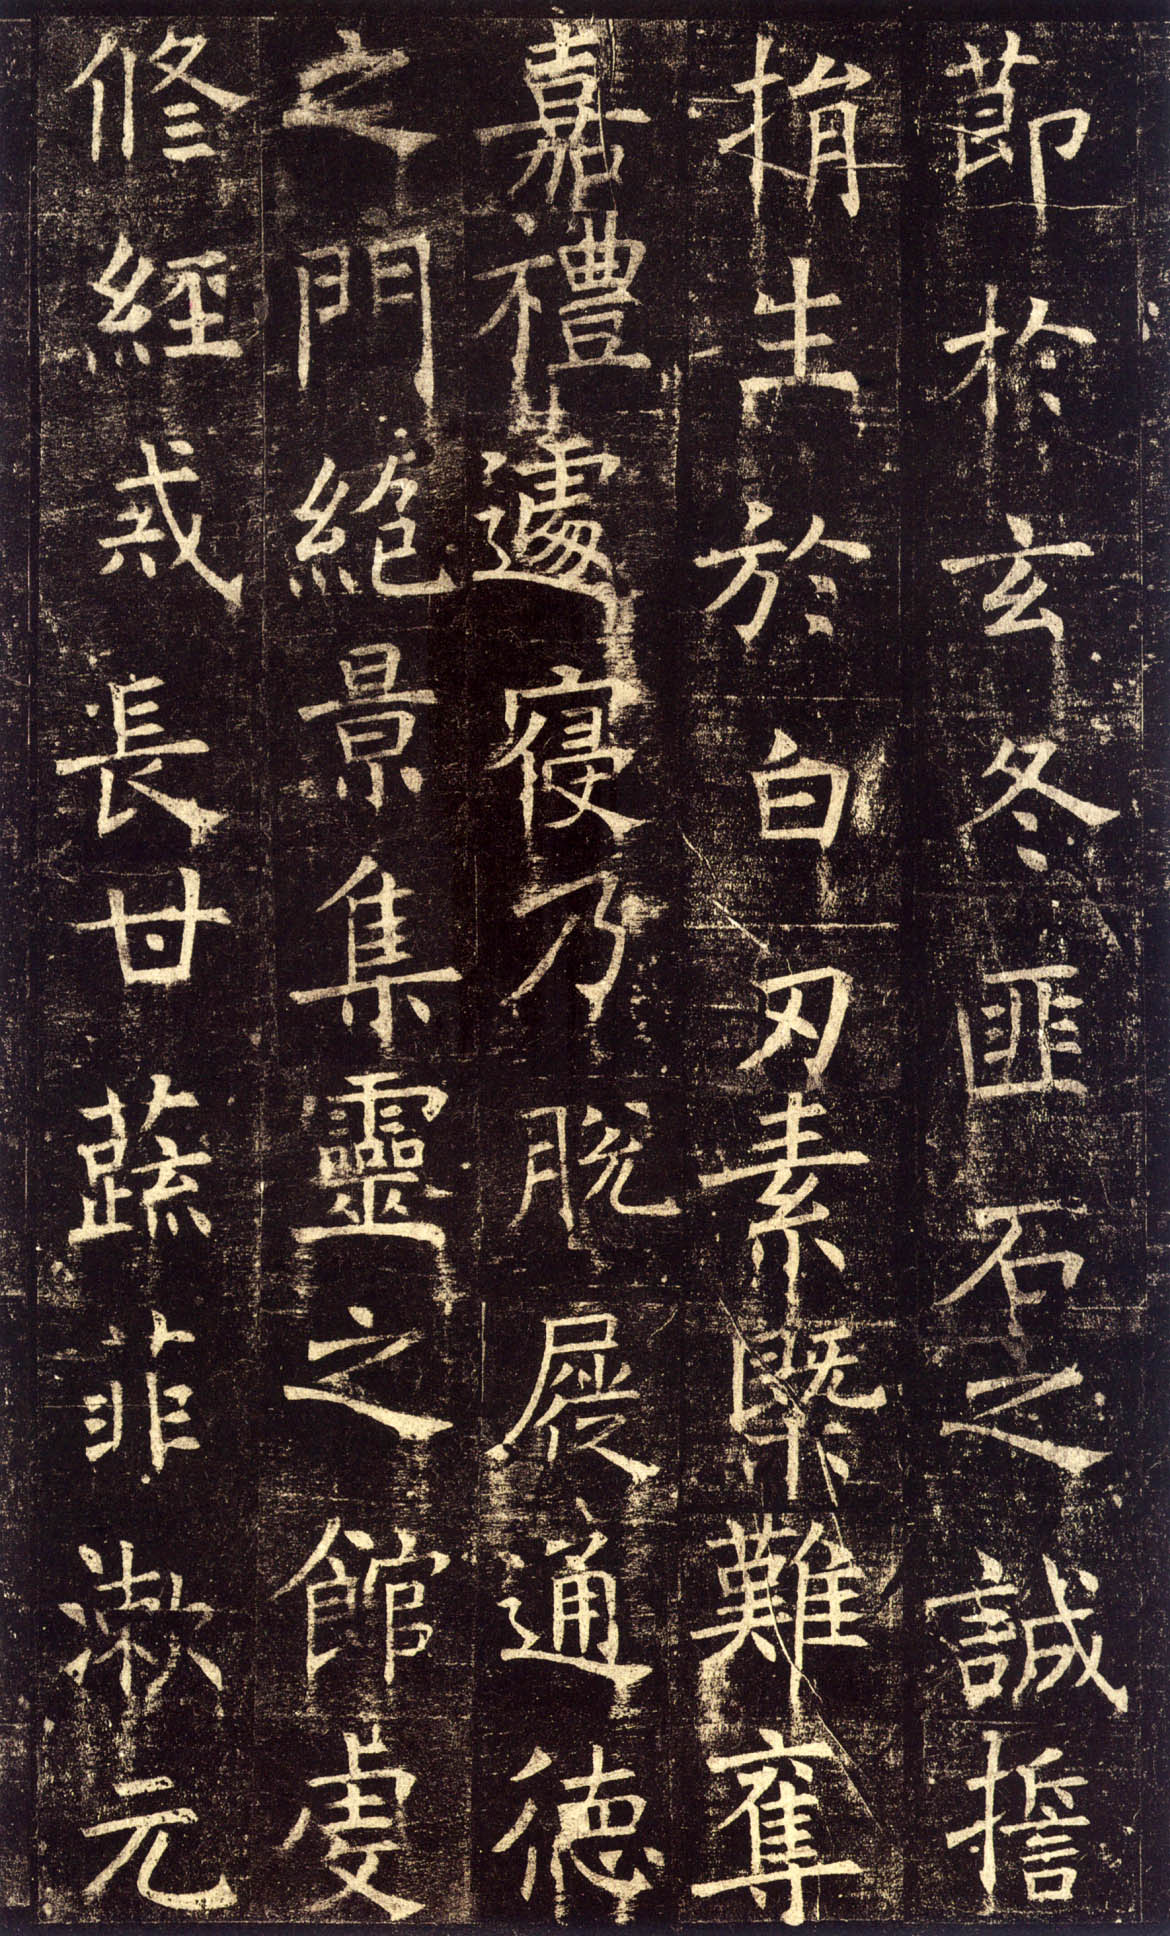 莭於玄冬匪石之誠擔
捐生於白刃素槩難奪
嘉禮遽寢乃脫屣通德
之門絕景集靈之館虔
修經戒長甘蔬菲漱元